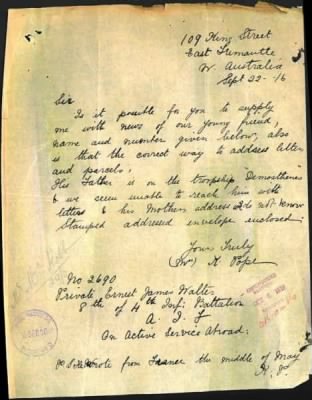 109 King Street
East Fremantle
W. Australia
Sept 22-16
Sir
Is it posible for you to supply
me with news of our young friend,
name and number given below, also
is that the correct way to address letter
and parcels,
His Father is on the troopship Demosthenes
& we seem unable to reach him with
letters & his Mothers address I do not know
Stamped addressed envelope enclosed.
Yours Truly
K Pope
No 2690
Private Ernest James Walter
8th of 4th Inf; Battalion
A. I. F
On Active Service Abroad;
wrote from France the middle of May
K. P.